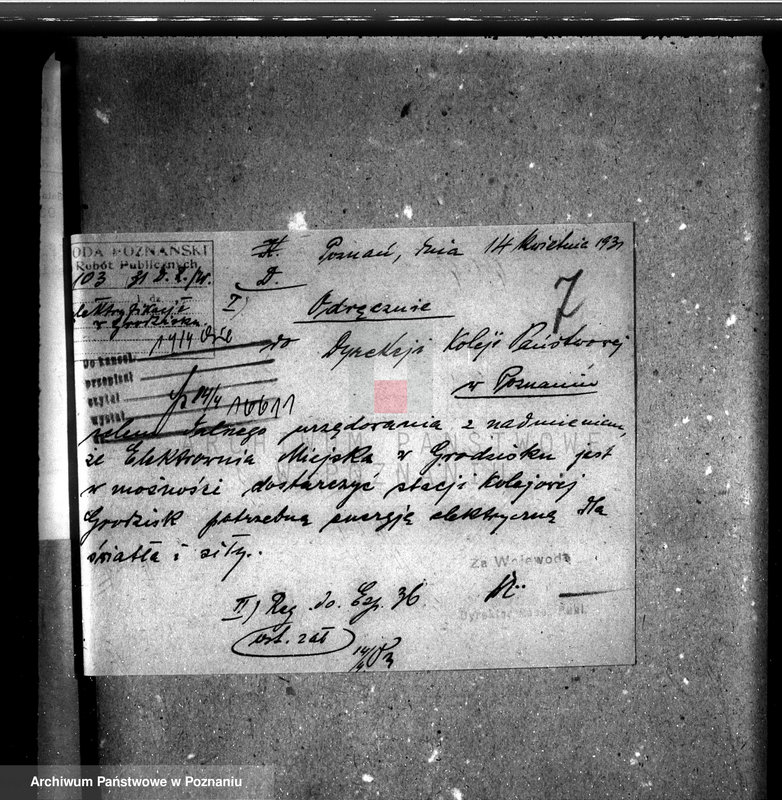 ODA POZNAŃSKI
Robót Publicznych
103
elektryfikacji
w Grodzisku
14/4
Do kancel.
przepisał
czytał
wysłał
14/4 16611
Poznań, dnia 14 kwietnia 1931
D.
7
I) Odręcznie
do Dyrekcji Kolei Państwowej
w Poznaniu
celem dalszego urzędowania z nadmienieniem,
że Elektrownia Miejska w Grodzisku jest
w możności dostarczyć stacji kolejowej
Grodzisk potrzebną energją elektryczną dla
światła i siły.
Za Wojewodę
Dyrektor Robót Publ.
II) Reg. do. Esp. 36.
wst. zał
ARCHIWUM PAŃSTWOWE
W POZNANIU
Archiwum Państwowe w Poznaniu